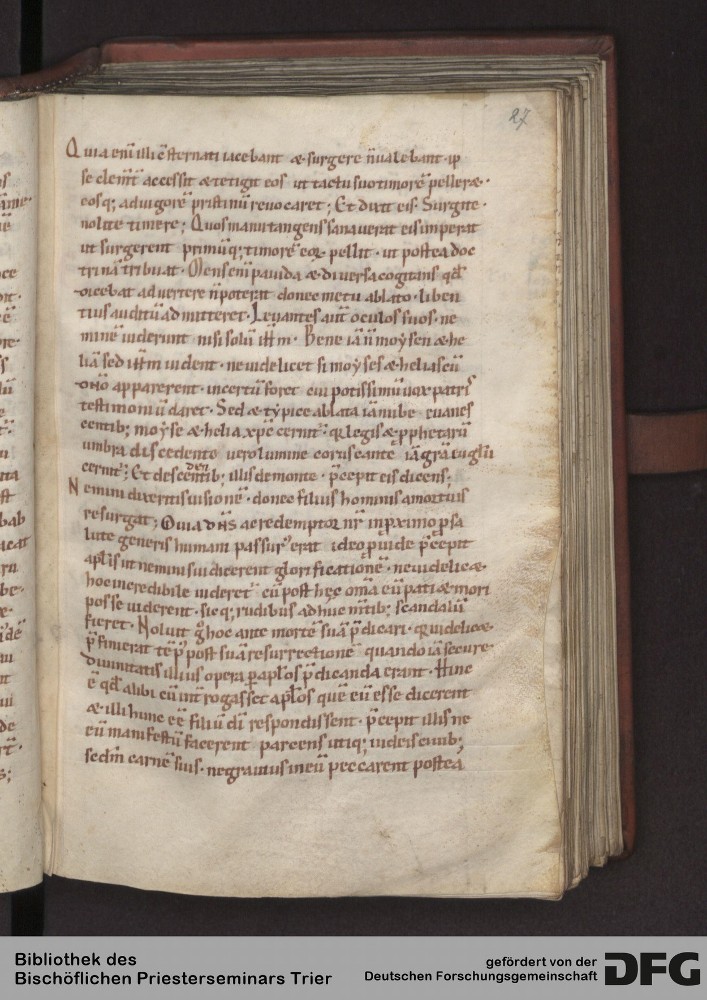 27
Quia eni illi cſternati iacebant & surgere n̄ ualebant · ip
se clem̄t accessit & tetigit eos ut tactu suo timorē pelleret ·
eosq; ad uigorē pristinū reuocaret ; Et dixit eis · Surgite ·
nolite timere ; Quos manu tangens sanauerat eis imperat
ut surgerent primūq; timorē eoꝝ pellit · ut postea doc
trinā tribuat · Mens enī pauida & diuersa cogitans qđ
dicebat aduertere n̄ poterat donec metu ablato · liben
tius auditū admitteret · Leuantes aut̄ oculos suos · ne
minē uiderunt nisi solū ihm · Bene iā n̄ moysen & he
liā sed ihm uident · ne uidelicet si moyses & helias cū
dno apparerent · incertū foret cui potissimū uox patris
testimoniū daret · Sed & typice ablata iā nube euanes
centib; moyse & helia xpc cernit · quia legis & pphetarū
umbra discedente uero lumine coruscante iā gra euglii
cernit ; Et descendentib; illis de monte · p̄cepit eis dicens ;
Nemini dixeritis uisionē · donec filius hominis a mortuis
resurgat ; Quia dns ac redemptor nr̄ in pximo p sa
lute generis humani passur erat ideo puide p̄cepit
aplis ut nemini sui dicerent glorificationē · ne uidelicet
hoc incredibile uideret cū post hęc oma eū pati & mori
posse uiderent · sicq; rudibus adhuc mtib; scandalū
fieret · Noluit g hoc ante mortē suā p̄dicari · quia uidelicet
p̄finierat tēp post suā resurrectionē quando iā secure
diuinitatis illius opera p aplos p̄dicanda erant · Hinc
ē qđ alibi cū int̄rogasset aplos quē eū esse dicerent
& illi hunc eē filiū di respondissent · p̄cepit illis ne
eū manifestū facerent parcens utiq; iudeis ciuib;
scdm carnē suis · ne grauius in eū peccarent postea
Bibliothek des
Bischöflichen Priesterseminars Trier
gefördert von der
Deutschen Forschungsgemeinschaft
DFG